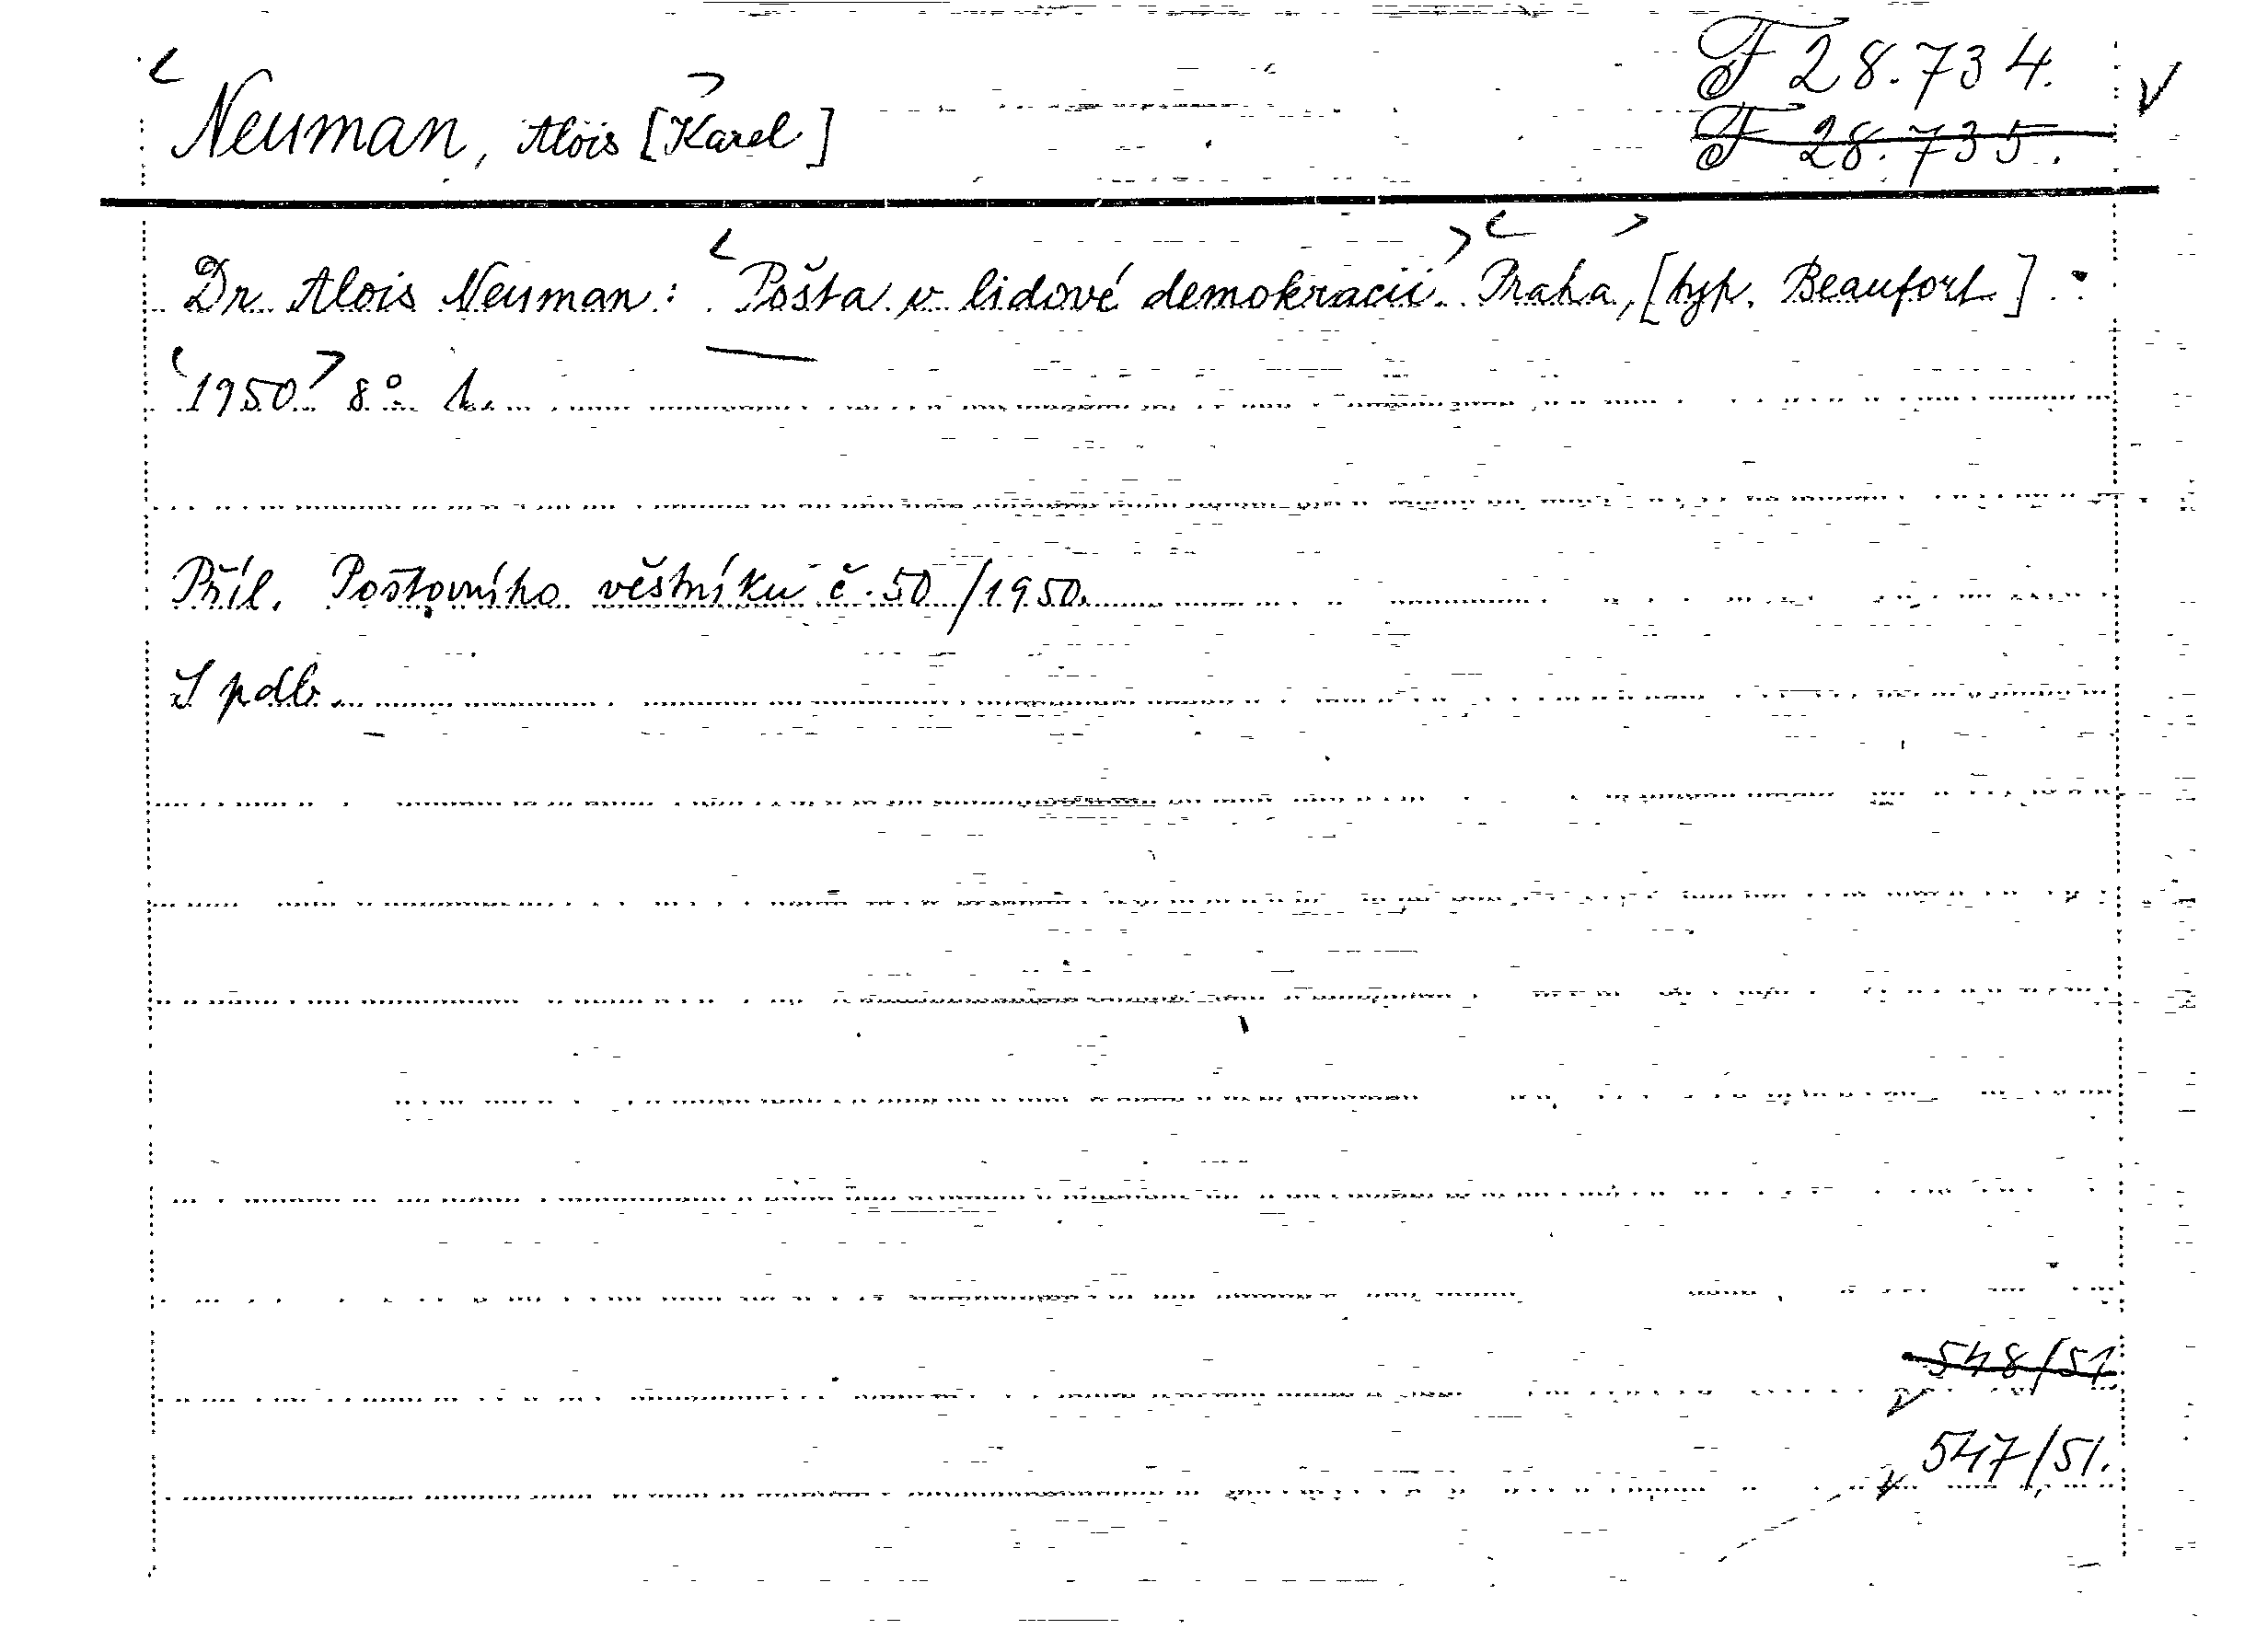 F 28.734.
Neuman, Alois [Karel]
F 28.735.
Dr. Alois Neuman: Pošta v lidové demokracii. Praha, [typ. Beaufort].
1950 8° 1.
Příl. Poštovního věstníku č. 50/1950.
S pdb.
548/51
547/51.